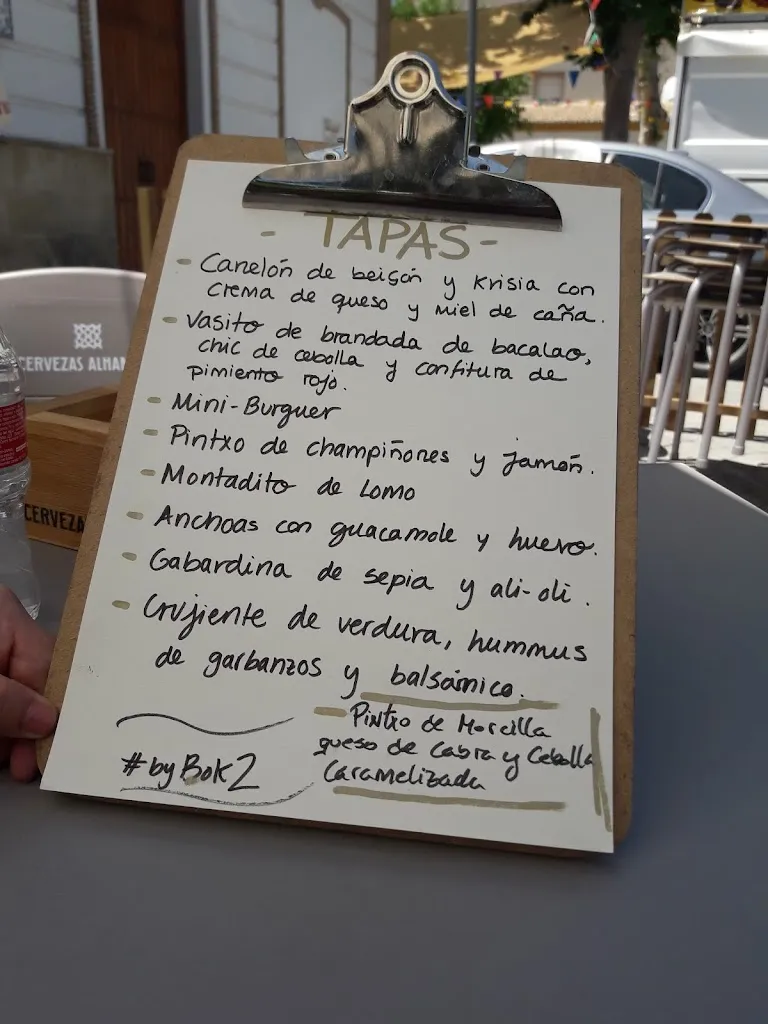 - TAPAS -
- Canelón de beicon y Krisia con
crema de queso y miel de caña.
- Vasito de brandada de bacalao,
chic de cebolla y confitura de
pimiento rojo.
- Mini-Burguer
- Pintxo de champiñones y jamón.
- Montadito de Lomo
- Anchoas con guacamole y huevo.
- Gabardina de sepia y ali-oli.
- Crujiente de verdura, hummus
de garbanzos y balsámico.
- Pintxo de Morcilla
queso de Cabra y Cebolla
Caramelizada
#byBok2
CERVEZAS ALHAM
CERVEZA